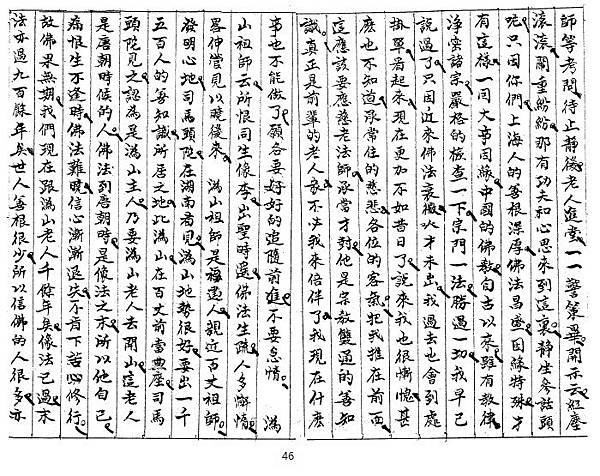 師等考問待止靜後老人進堂一一警策畢開示云紅塵
滾滾鬧重紛紛那有功夫和心思來到這裏靜坐參話頭
呢只因你們上海人的善根深厚佛法昌盛因緣特殊才
有這樣一回大事因緣中國的佛教自古以來雖有教律
淨密諸宗嚴格的檢查一下宗門一法勝過一切我早已
說過了只因近來佛法衰微人才未出我過去也會到處
掛單看起來現在更加不如昔日了說來我也很慚愧甚
麼也不知道承常住的慈悲各位的客氣把我推在前面
這應該要應慈老法師承當才對他是宗教雙通的善知
識真正是前輩的老人家不必我來倍伴了我現在什麼
事也不能做了願各要好好的追隨前進不要怠惰 溈
山祖師云所恨同生像季出聖時遙佛法生疏人多懈惰
略伸管見以曉後來 溈山祖師是福遇人親近百丈祖師
發明心地司馬頭陀在湖南看見溈山地勢很好要出一千
五百人的善知識所居之地此溈山在百丈前當典座司馬
頭陀見之認為是溈山主人乃要溈山老人去開山這老人
是唐朝時候的人佛法到唐朝時是像法之末所以他自己
痛恨生不逢時佛法難曉信心漸漸退失不肯下苦心修行
故佛果無期我們現在距溈山老人千餘年矣像法已過末
法亦過九百餘年矣世人善根很少所以信佛的人很多亦
46